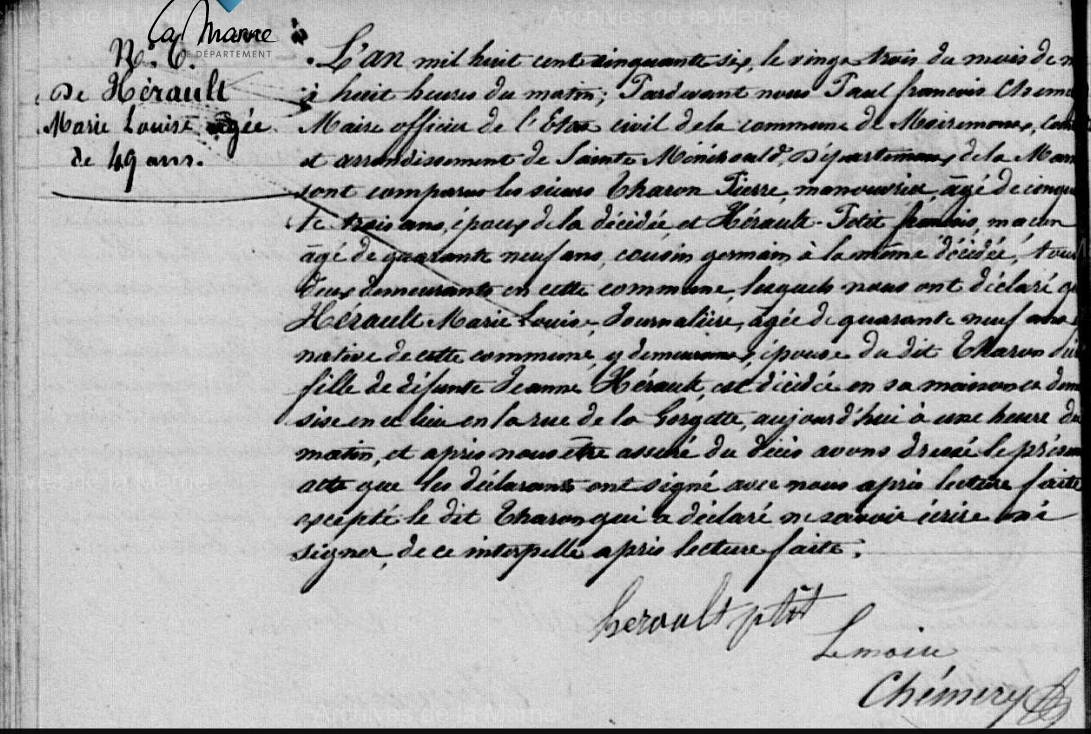 Archives de la Marne
La Marne
LE DÉPARTEMENT
N°. 6.
De Hérault
Marie Louise agée
de 49 ans.
L'an mil huit cent cinquante six, le vingt trois du mois de
à huit heures du matin; Pardevant nous Paul francois Chéme
Maire officier de l'Etat civil de la commune de Moiremont,
et arrondissement de Sainte Ménéhould, Département de la Marn
sont comparus les sieurs Tharon Pierre, manouvrier, âgé de cinqu
te trois ans, époux de la décédée et Hérault-Petit francois, macon
âgé de quarante neuf ans, cousin germain à la même décédée, tous
deux demeurants en cette commune, lesquels nous ont déclaré q
Hérault Marie Louise, Journalière, agée de quarante neuf ans
native de cette commune, y demeurant, épouse du dit Tharon
fille de défunte Jeanne Hérault, est décédée en sa maison
sise en ce lieu en la rue de la Gorgette, aujourd'hui à une heure du
matin, et après nous être assuré du décès avons dressé le présen
acte que les déclarants ont signé avec nous après lecture faite
excepté le dit Tharon qui a déclaré ne savoir écrire ni
signer, de ce interpellé après lecture faite.
herault ptit
Le maire
Chémery